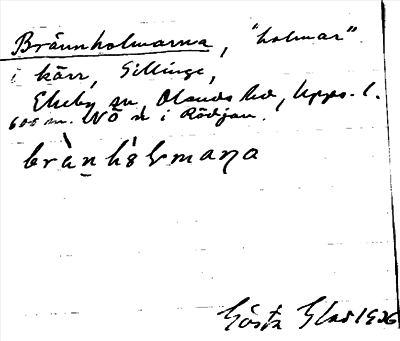 Brännholmarna, "holmar"
i kärr, Gillinge,
Ekeby sn, Olands hd, Upps. l.
600 m. NÖ n i Rödjan.
brà̱nhòlmaɳa
Gösta Glad 1926